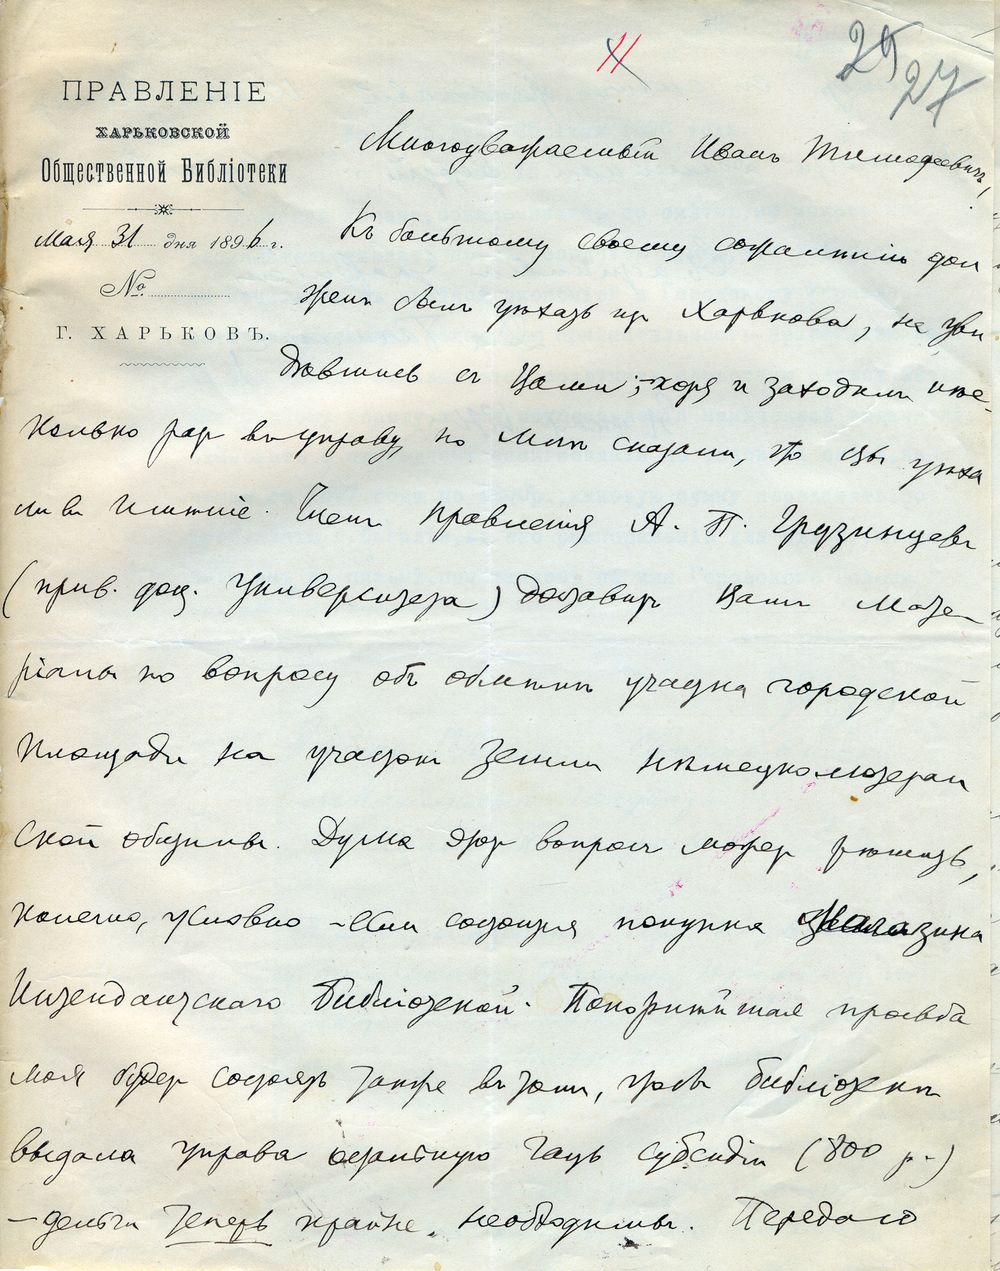 11
25
27
ПРАВЛЕНІЕ
ХАРЬКОВСКОЙ
Общественной Библіотеки
Мая 31 дня 1896 г.
№
Г. ХАРЬКОВЪ.
Многоуважаемый Иванъ Тимофеевичъ,
Къ большому своему сожалѣнію дол
женъ былъ уѣхать изъ Харькова, не уви
дѣвшись съ Вами; хотя и заходилъ нѣс-
колько разъ въ управу, но мнѣ сказали, что Вы уѣха
ли въ имѣніе. Членъ правленія А. П. Грузинцевъ
(прив. доц. Университета) доставитъ Вамъ мате
ріалы по вопросу объ обмѣнѣ участка городской
площади на участокъ земли нѣмецколютеран
ской общины. Дума этотъ вопросъ можетъ рѣшить,
конечно, условно - если состоится покупка магазина
Интендантскаго библіотекой. Покорнѣйшая просьба
моя будетъ состоять также въ томъ, чтобъ библіотекѣ
выдала управа остальную часть субсидіи (800 р.)
- деньги теперь крайне необходимы. Передаю